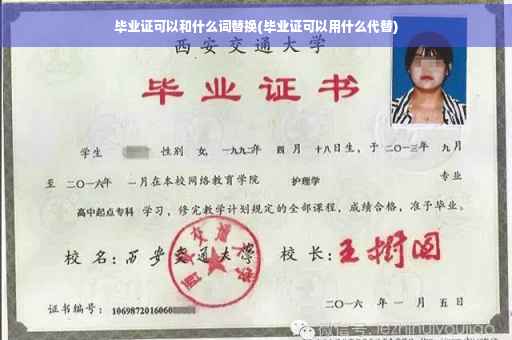 毕业证可以和什么词替换(毕业证可以用什么代替)
西安交通大学
毕业证书
学生 性别 女, 一九九二年 四 月 十八日生, 于 二〇一三年 九月
至 二〇一六年 一月在本校网络教育学院 护理学 专业
高中起点专科 学习, 修完教学计划规定的全部课程, 成绩合格, 准予毕业。
校 名: 西安交通大学 校 长: 王树国
西安交通大学
证书编号: 1069872016060
二〇一六 年 一 月 五 日
微信号: jiezhinuiyoujiao